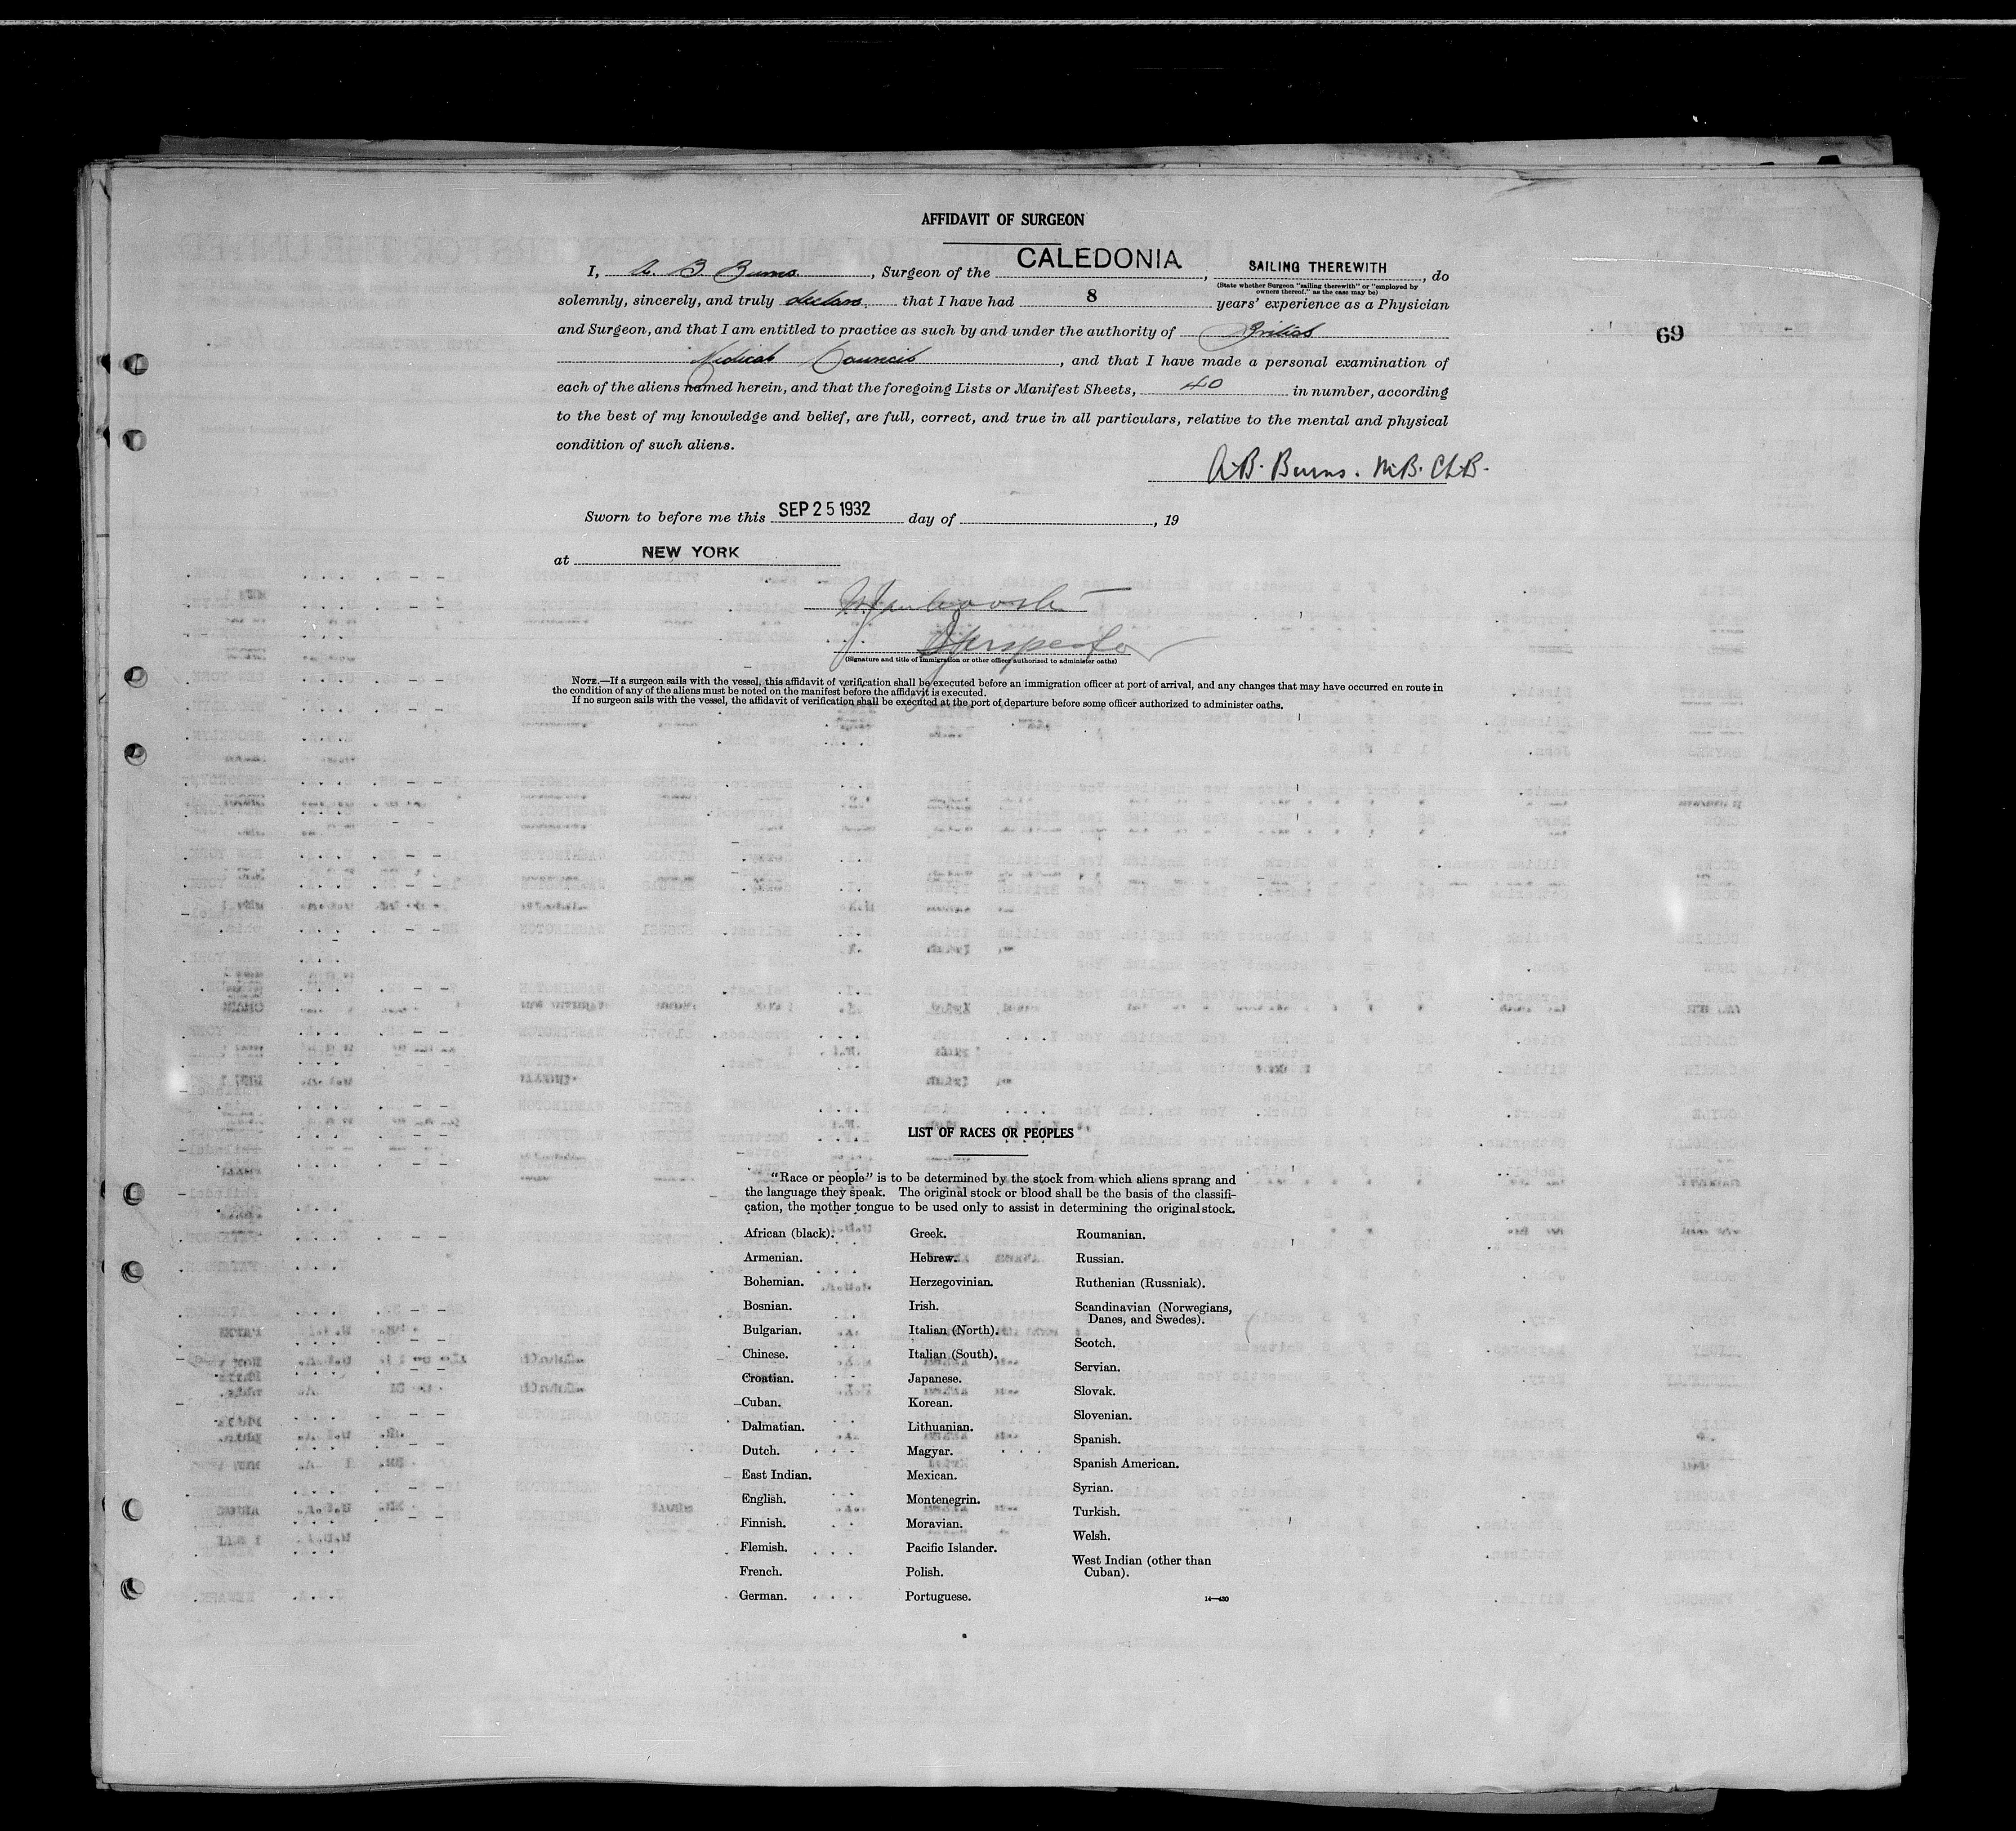 AFFIDAVIT OF SURGEON
I, A. B. Burns, Surgeon of the CALEDONIA, SAILING THEREWITH, do
(State whether Surgeon "sailing therewith" or "employed by
owners thereof," as the case may be)
solemnly, sincerely, and truly declare that I have had 8 years' experience as a Physician
and Surgeon, and that I am entitled to practice as such by and under the authority of British
Medical Council, and that I have made a personal examination of
69
each of the aliens named herein, and that the foregoing Lists or Manifest Sheets, 40 in number, according
to the best of my knowledge and belief, are full, correct, and true in all particulars, relative to the mental and physical
condition of such aliens.
A.B. Burns. M.B. Ch.B.
Sworn to before me this SEP 25 1932 day of , 19
at NEW YORK
Inspector
(Signature and title of immigration or other officer authorized to administer oaths)
NOTE.—If a surgeon sails with the vessel, this affidavit of verification shall be executed before an immigration officer at port of arrival, and any changes that may have occurred en route in
the condition of any of the aliens must be noted on the manifest before the affidavit is executed.
If no surgeon sails with the vessel, the affidavit of verification shall be executed at the port of departure before some officer authorized to administer oaths.
LIST OF RACES OR PEOPLES
"Race or people" is to be determined by the stock from which aliens sprang and
the language they speak. The original stock or blood shall be the basis of the classifi-
cation, the mother tongue to be used only to assist in determining the original stock.
African (black).
Armenian.
Bohemian.
Bosnian.
Bulgarian.
Chinese.
Croatian.
Cuban.
Dalmatian.
Dutch.
East Indian.
English.
Finnish.
Flemish.
French.
German.
Greek.
Hebrew.
Herzegovinian.
Irish.
Italian (North).
Italian (South).
Japanese.
Korean.
Lithuanian.
Magyar.
Mexican.
Montenegrin.
Moravian.
Pacific Islander.
Polish.
Portuguese.
Roumanian.
Russian.
Ruthenian (Russniak).
Scandinavian (Norwegians,
Danes, and Swedes).
Scotch.
Servian.
Slovak.
Slovenian.
Spanish.
Spanish American.
Syrian.
Turkish.
Welsh.
West Indian (other than
Cuban).
14—430